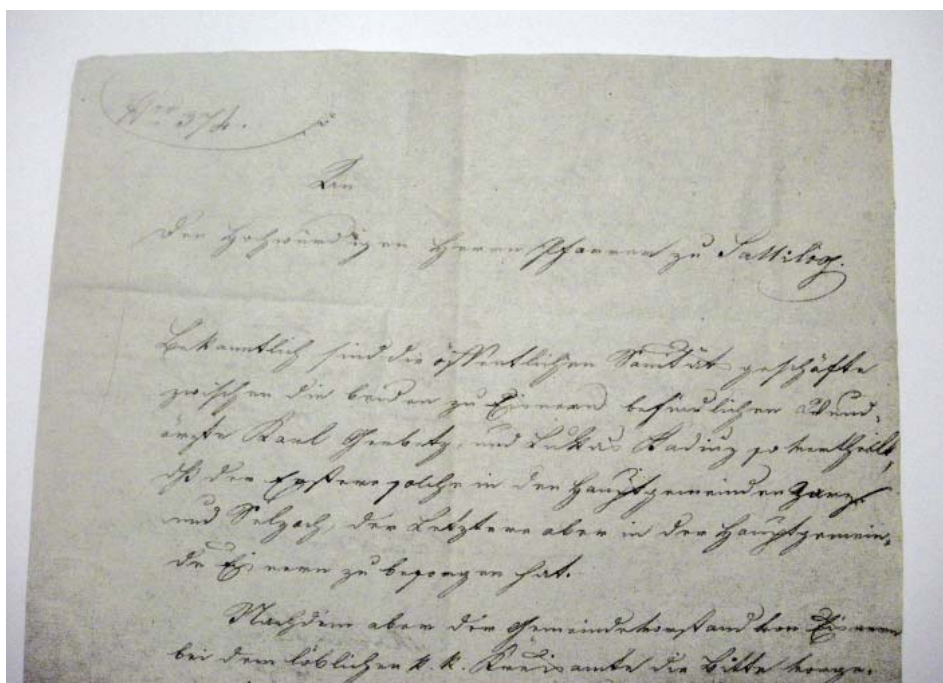 Nro 374.
An
Den Hochwürdigen Herrn Pfarrer zu Sallilog.
Bekanntlich sind die öffentlichen Sanitätsgeschäfte
zwischen die beiden zu Eisnern befindlichen Wund-
ärzte Karl Gerbetz, und Lukas Kadiuz so vertheilt,
dß der Erstere solche in den Hauptgemeinden Zarz
und Selzach, der Letztere aber in der Hauptgemein-
de Eisnern zu besorgen hat.
Nachdem aber der Gemeindevorstand von Eisnern
bei dem löblichen k. k. Kreisamte die Bitte vorge-